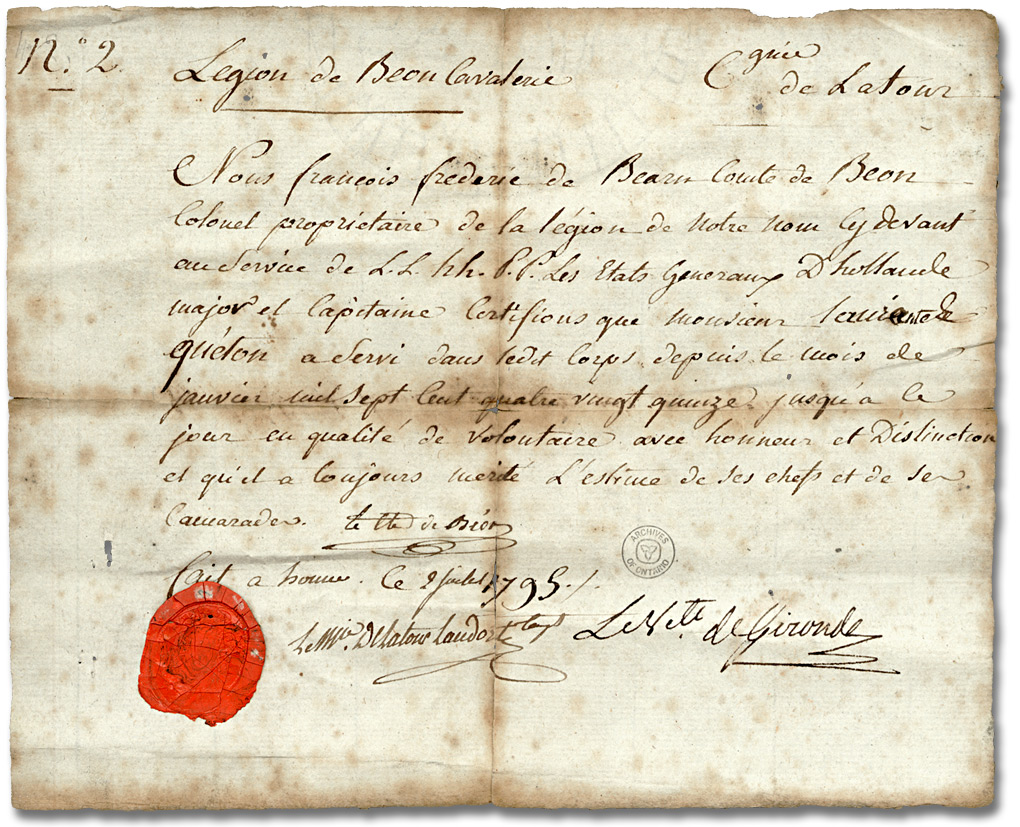 N.º 2.
Legion de Beon Cavalerie
C.gnie
de Latour
Nous françois frederic de Bearn Comte de Beon
Colonel propriétaire de la légion de notre nom Cy devant
au Service de L.L. hh. P.P. Les Etats Generaux D'hollande
major et Capitaine Certifions que monsieur Laurent
quéton a Servi dans ledit Corps depuis le mois de
janvier mil Sept Cent quatre vingt quinze jusqu'à ce
jour en qualité de volontaire avec honneur et Distinction
et qu'il a toujours merité L'estime de ses chefs et de ses
Camarades. le Cte de Béon
fait a ce 2 juillet 1795./.
ARCHIVES OF ONTARIO
Le Mis. De Latour Landorte Le Vcte. de Gironde